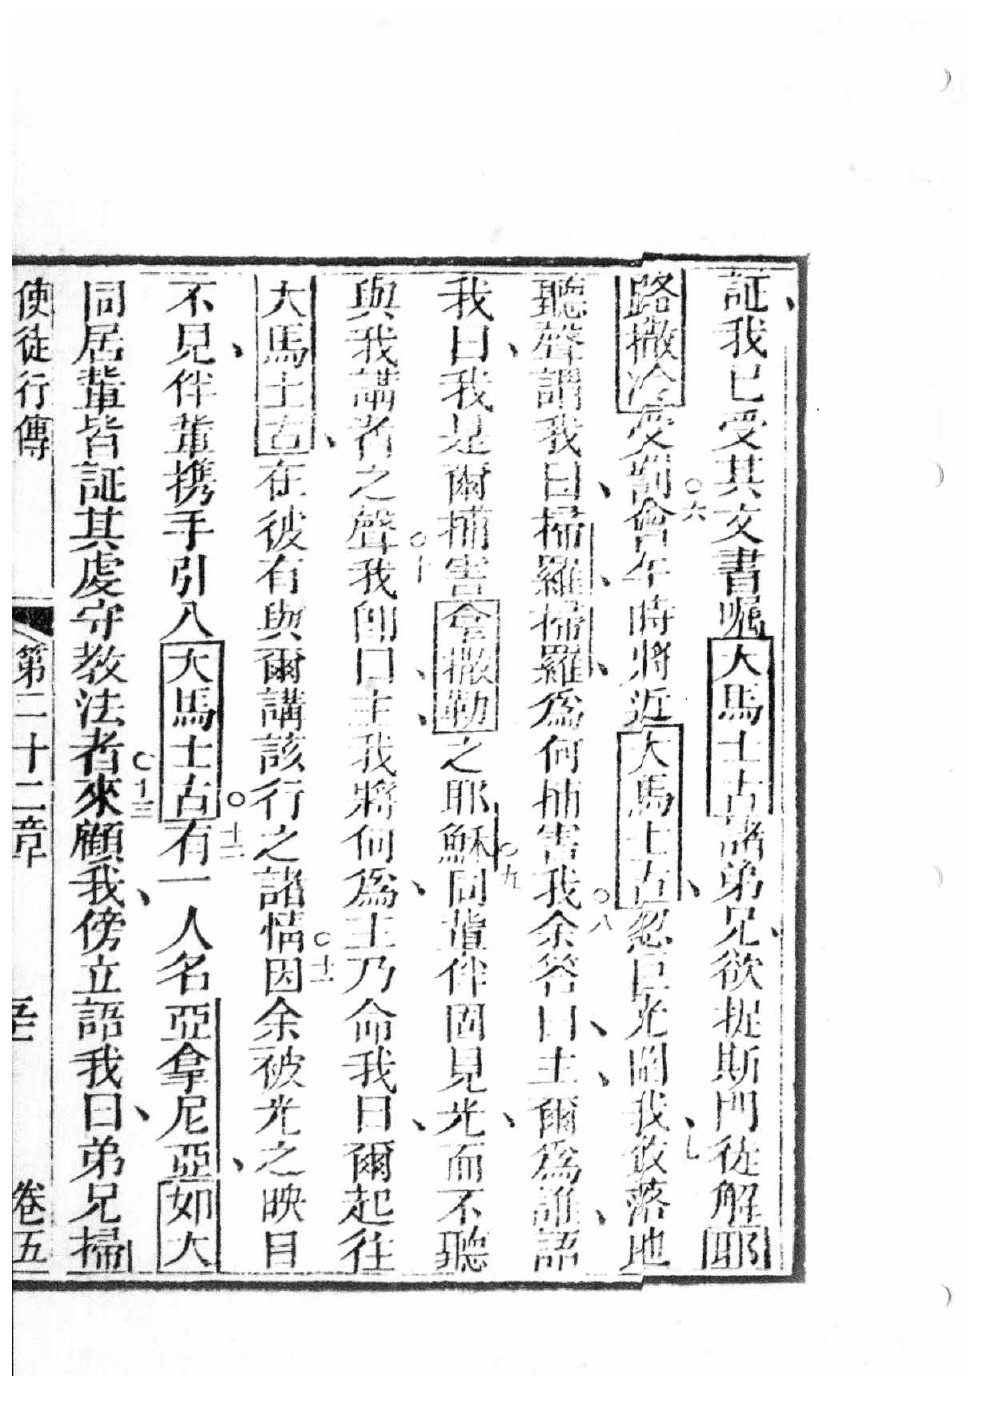 証我已受其文書囑大馬士古諸弟兄欲捉斯門徒解耶
路撒冷受劉○六會午時將近大馬士古忽巨光圍我○七致落地
聽聲謂我曰掃羅掃羅爲何捕害我○八余答曰主爾爲誰語
我曰我是爾捕害拿撒勒之耶穌○九同輩伴固見光而不聽
與我講者之聲○十我卽曰主我將何爲主乃命我曰爾起往
大馬士古在彼有與爾講該行之諸情○十一因余被光之映目
不見伴輩携手引入大馬士古○十二有一人名亞拿尼亞如大
同居輩皆証其虔守教法者○十三來顧我傍立語我曰弟兄掃
使徒行傳 第二十二章 卷五